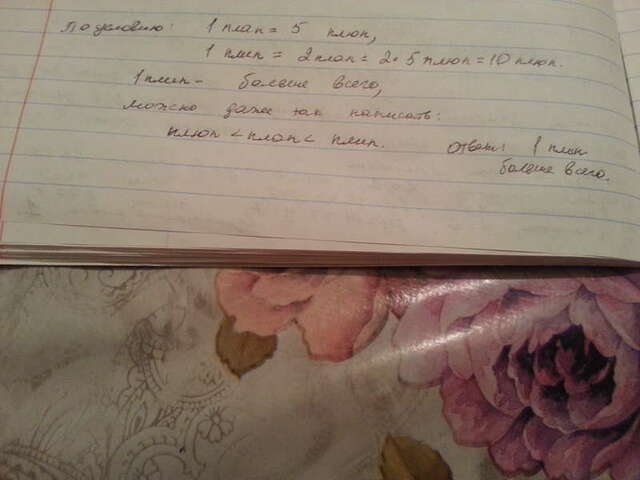 По условию: 1 плап = 5 плюп,
1 плип = 2 плап = 2 · 5 плюп = 10 плюп.
1 плип - больше всего,
можно даже так написать:
плюп < плап < плип.
Ответ: 1 плип
больше всего.